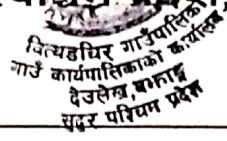 वित्थडचिर गाउँपालिका
गाउँ कार्यपालिकाको कार्यालय
देउलेख, बझाङ्ग
सुदूर पश्चिम प्रदेश